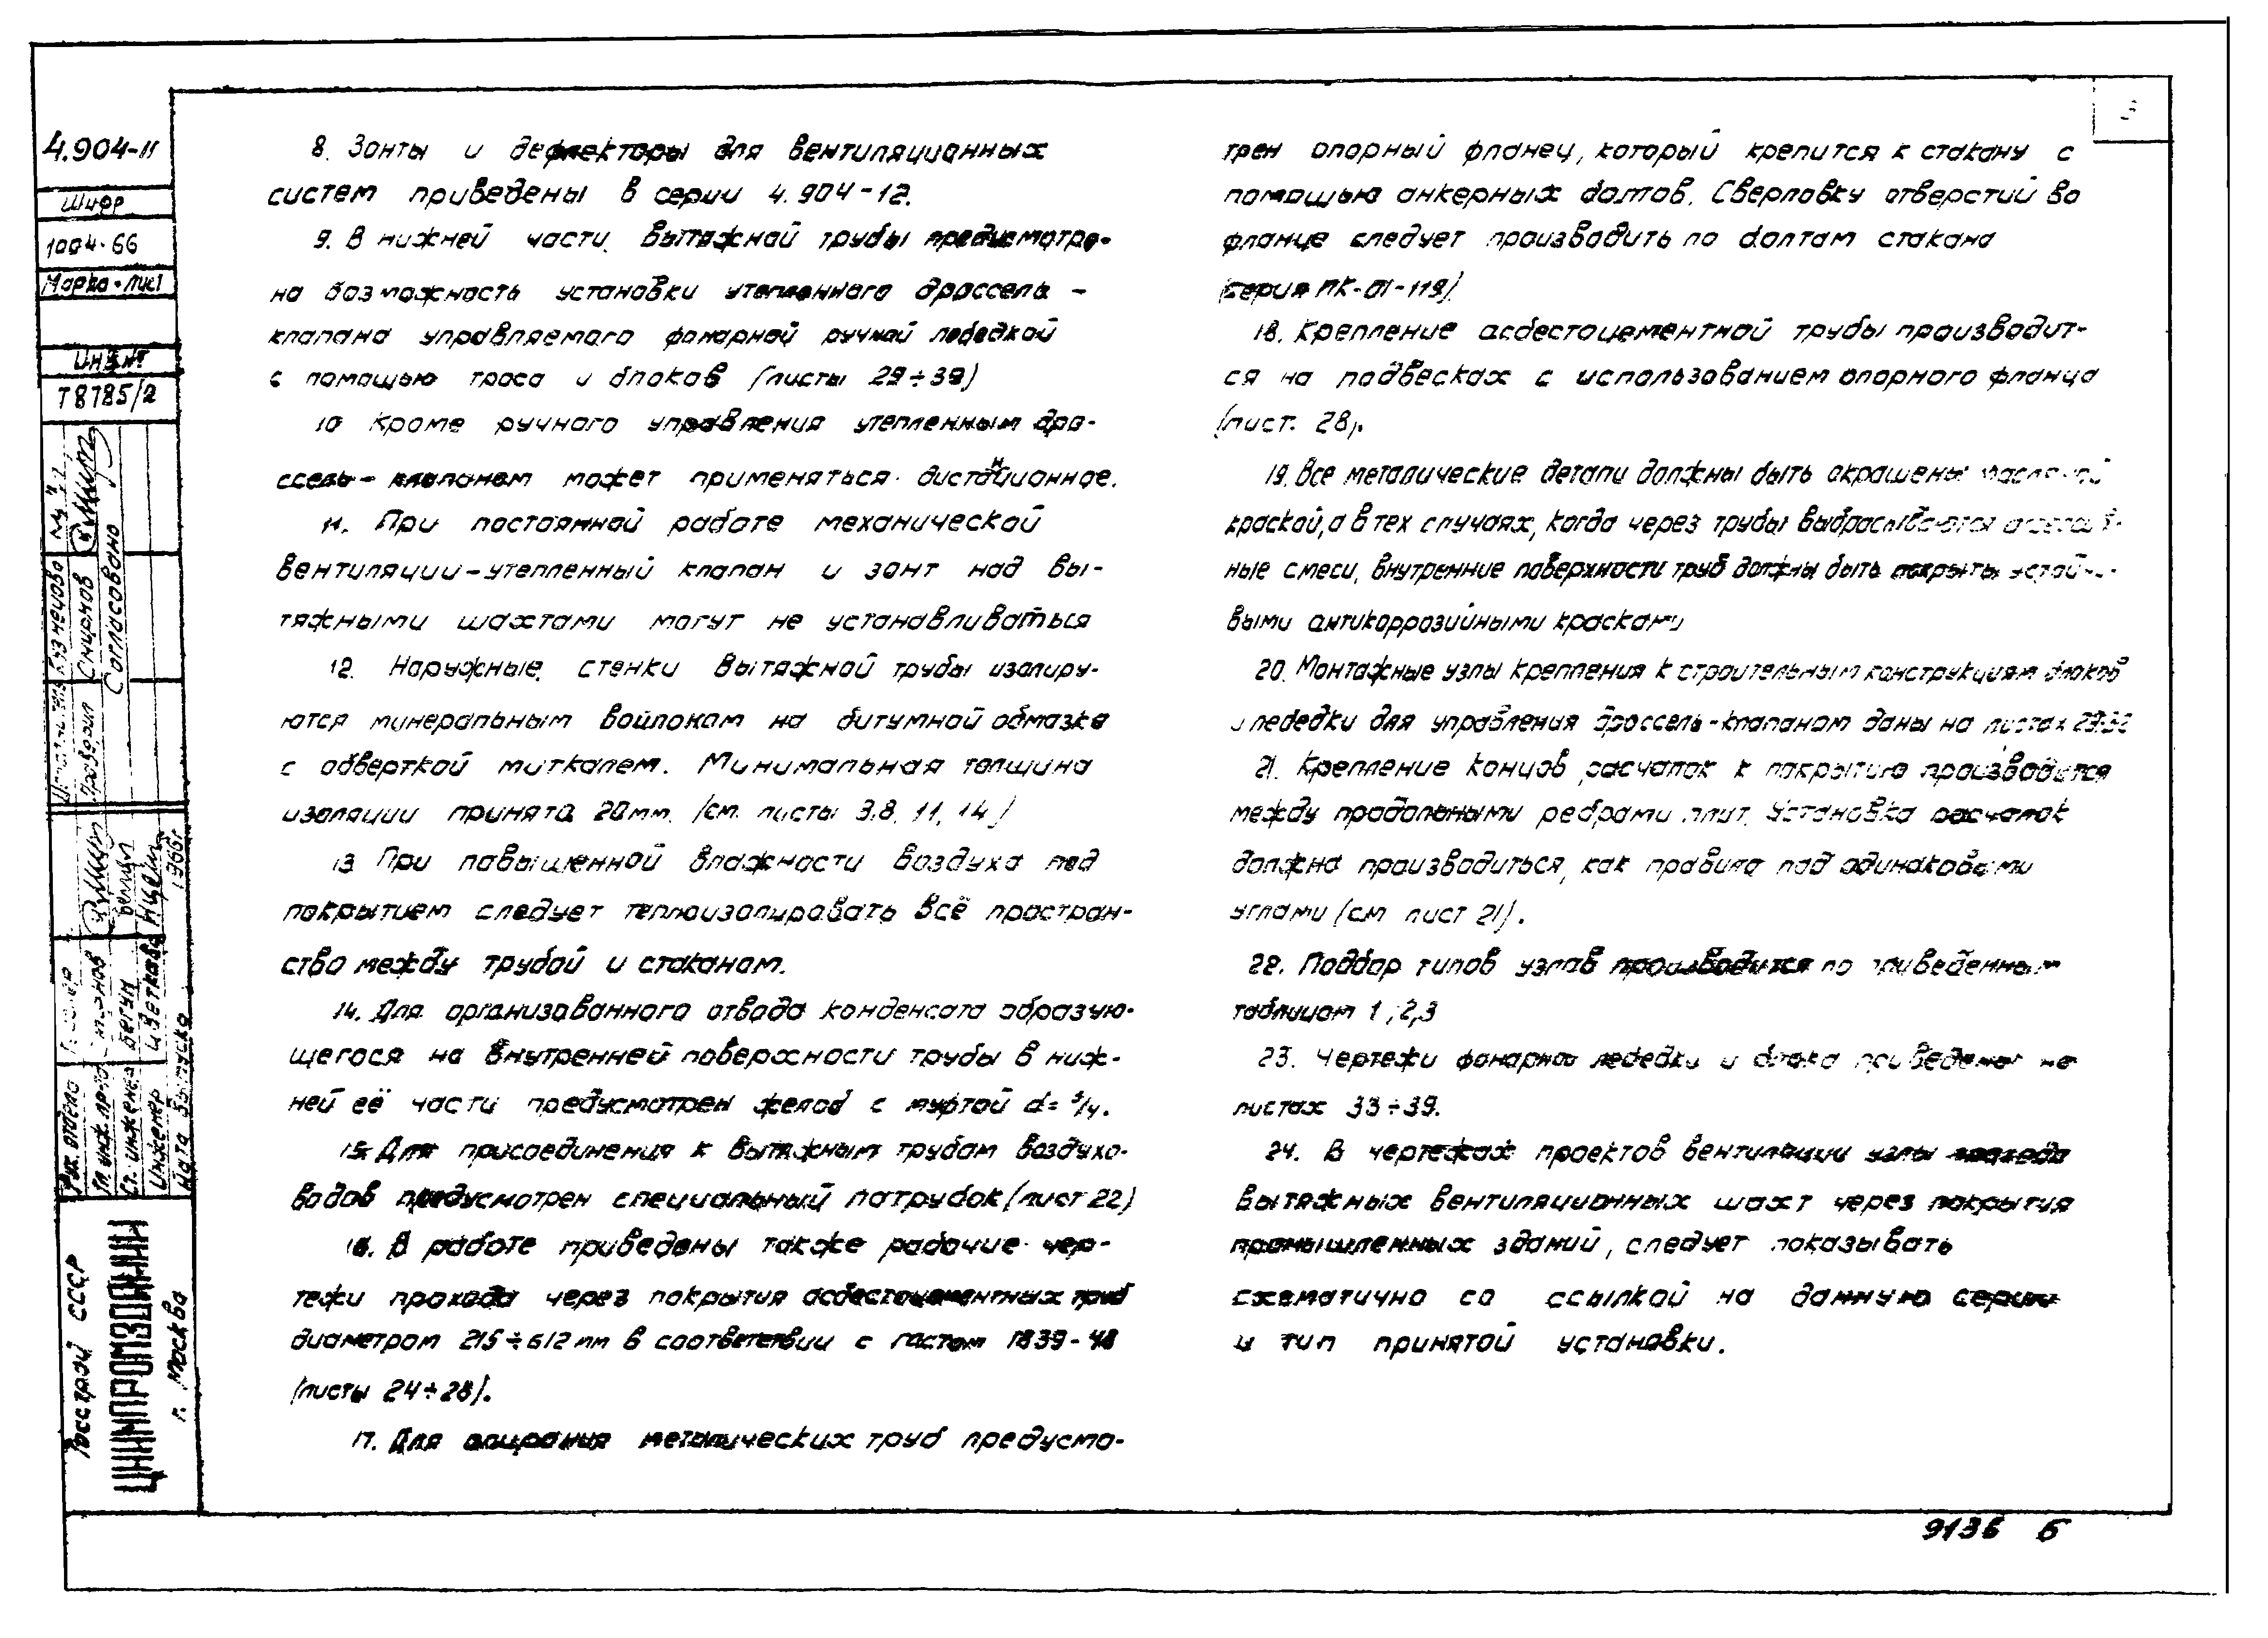 3
4.904-11
Шифр
1004-66
Марка-лист
Инв.№
Т8785/2
Кузнецова
Смирнов
Согласовано
Проверил
Рук. отдела
Гл. инж. пр-та
Ст. инженер
Инженер
Дата выпуска
Бегун
Цветкова
1966г.
Госстрой СССР
ЦНИИПРОМЗДАНИЙ
г. Москва
8. Зонты и дефлекторы для вентиляционных
систем приведены в серии 4.904-12.
9. В нижней части вытяжной трубы предусмотре-
на возможность установки утепленного дроссель-
клапана управляемого фонарной ручной лебедкой
с помощью троса и блоков (листы 29÷39)
10 Кроме ручного управления утепленным дро-
ссель-клапаном может применяться дистанционное.
11. При постоянной работе механической
вентиляции-утепленный клапан и зонт над вы-
тяжными шахтами могут не устанавливаться
12. Наружные стенки вытяжной трубы изолиру-
ются минеральным войлоком на битумной обмазке
с обверткой миткалем. Минимальная толщина
изоляции принята 20мм. /см. листы 3,8, 11, 14/
13 При повышенной влажности воздуха под
покрытием следует теплоизолировать всё простран-
ство между трубой и стаканом.
14. Для организованного отвода конденсата образую-
щегося на внутренней поверхности трубы в ниж-
ней её части предусмотрен желоб с муфтой d= 3/4.
15. Для присоединения к вытяжным трубам воздухо-
водов предусмотрен специальный патрубок (лист 22)
16. В работе приведены также рабочие чер-
тежи прохода через покрытия асбестоцементных труб
диаметром 215÷612 мм в соответствии с гостом 1839-48
/листы 24÷28/.
17. Для опирания металических труб предусмо-
трен опорный фланец, который крепится к стакану с
помощью анкерных болтов. Сверловку отверстий во
фланце следует производить по болтам стакана
/серия ПК-01-119/
18. Крепление асбестоцементной трубы производит-
ся на подвесках с использованием опорного фланца
/лист. 28/.
19. Все металические детали должны быть окрашены масляной
краской, а в тех случаях, когда через трубы выбрасываются агрессив-
ные смеси, внутренние поверхности труб должны быть покрыты устойчи-
выми антикоррозийными красками
20. Монтажные узлы крепления к строительным конструкциям блоков
и лебедки для управления дроссель-клапаном даны на листах 29÷32
21. Крепление концов расчалок к покрытию производится
между продольными ребрами плит. Установка расчалок
должна производиться, как правило под одинаковыми
углами /см лист 21/.
22. Подбор типов узлов производится по приведенным
таблицам 1,2,3
23. Чертежи фонарной лебедки и блока приведены на
листах 33÷39.
24. В чертежах проектов вентиляции узлы прохода
вытяжных вентиляционных шахт через покрытия
промышленных зданий, следует показывать
схематично со ссылкой на данную серию
и тип принятой установки.
9136 6